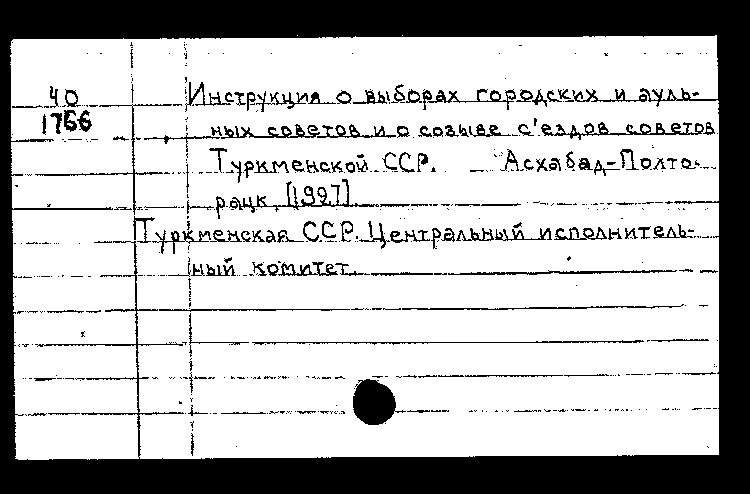 40
1766
Инструкция о выборах городских и ауль-
ных советов и о созыве с'ездов советов
Туркменской ССР. Асхабад-Полто-
рацк, [1927].
Туркменская ССР. Центральный исполнитель-
ный комитет.